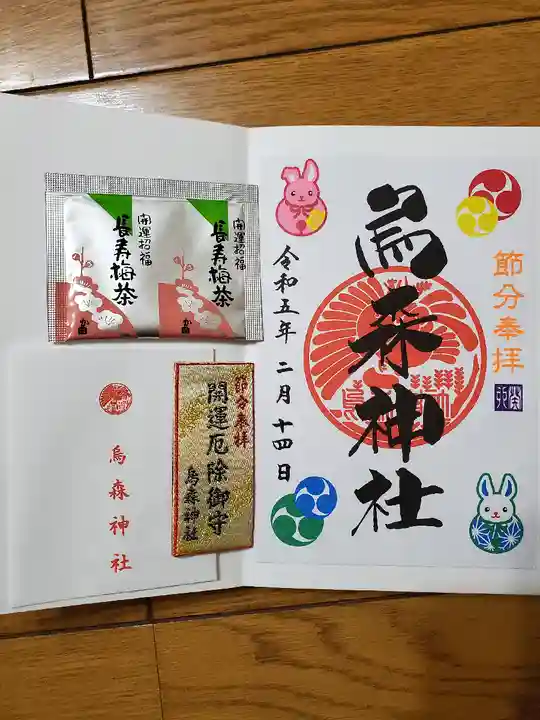 開運招福
長寿梅茶
開運招福
長寿梅茶
烏森神社
節分奉拝
開運厄除御守
烏森神社
節分奉拝
烏森神社
令和五年 二月 十四日